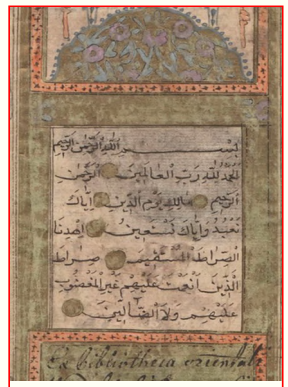 بِسْمِ اللَّهِ الرَّحْمَنِ الرَّحِيمِ
الْحَمْدُ لِلَّهِ رَبِّ الْعَالَمِينَ الرَّحْمَنِ
الرَّحِيمِ مَالِكِ يَوْمِ الدِّينِ إِيَّاكَ
نَعْبُدُ وَإِيَّاكَ نَسْتَعِينُ اهْدِنَا
الصِّرَاطَ الْمُسْتَقِيمَ صِرَاطَ
الَّذِينَ أَنْعَمْتَ عَلَيْهِمْ غَيْرِ الْمَغْضُوبِ
عَلَيْهِمْ وَلَا الضَّالِّينَ
Ex bibliotheca oriental